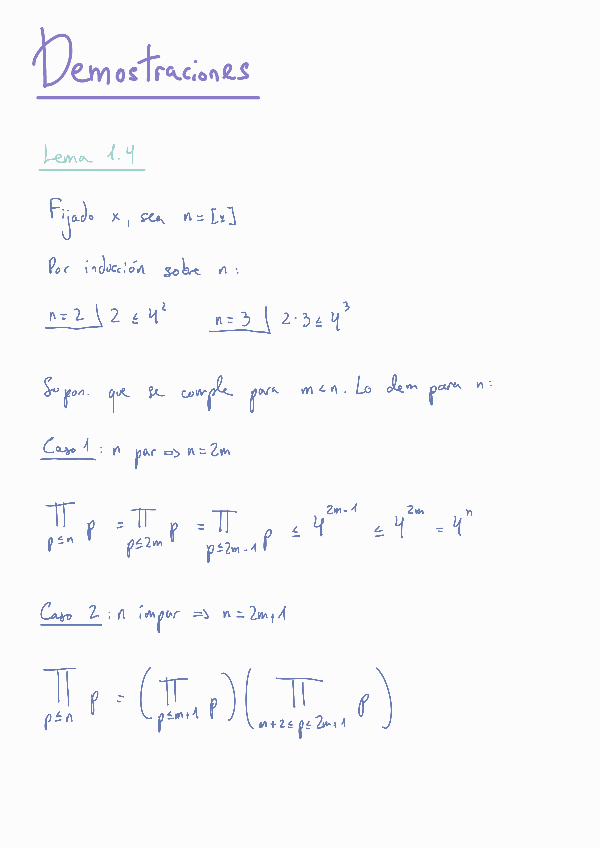 Demostraciones
Lema 1.4
Fijado x, sea n = [x]
Por inducción sobre n:
n = 2 | 2 ≤ 4^2   n = 3 | 2·3 ≤ 4^3
Supon. que se cumple para m < n. Lo dem para n:
Caso 1: n par ⇒ n = 2m
∏_{p≤n} p = ∏_{p≤2m} p = ∏_{p≤2m-1} p ≤ 4^{2m-1} ≤ 4^{2m} = 4^n
Caso 2: n impar ⇒ n = 2m+1
∏_{p≤n} p = (∏_{p≤m+1} p)(∏_{m+2≤p≤2m+1} p)